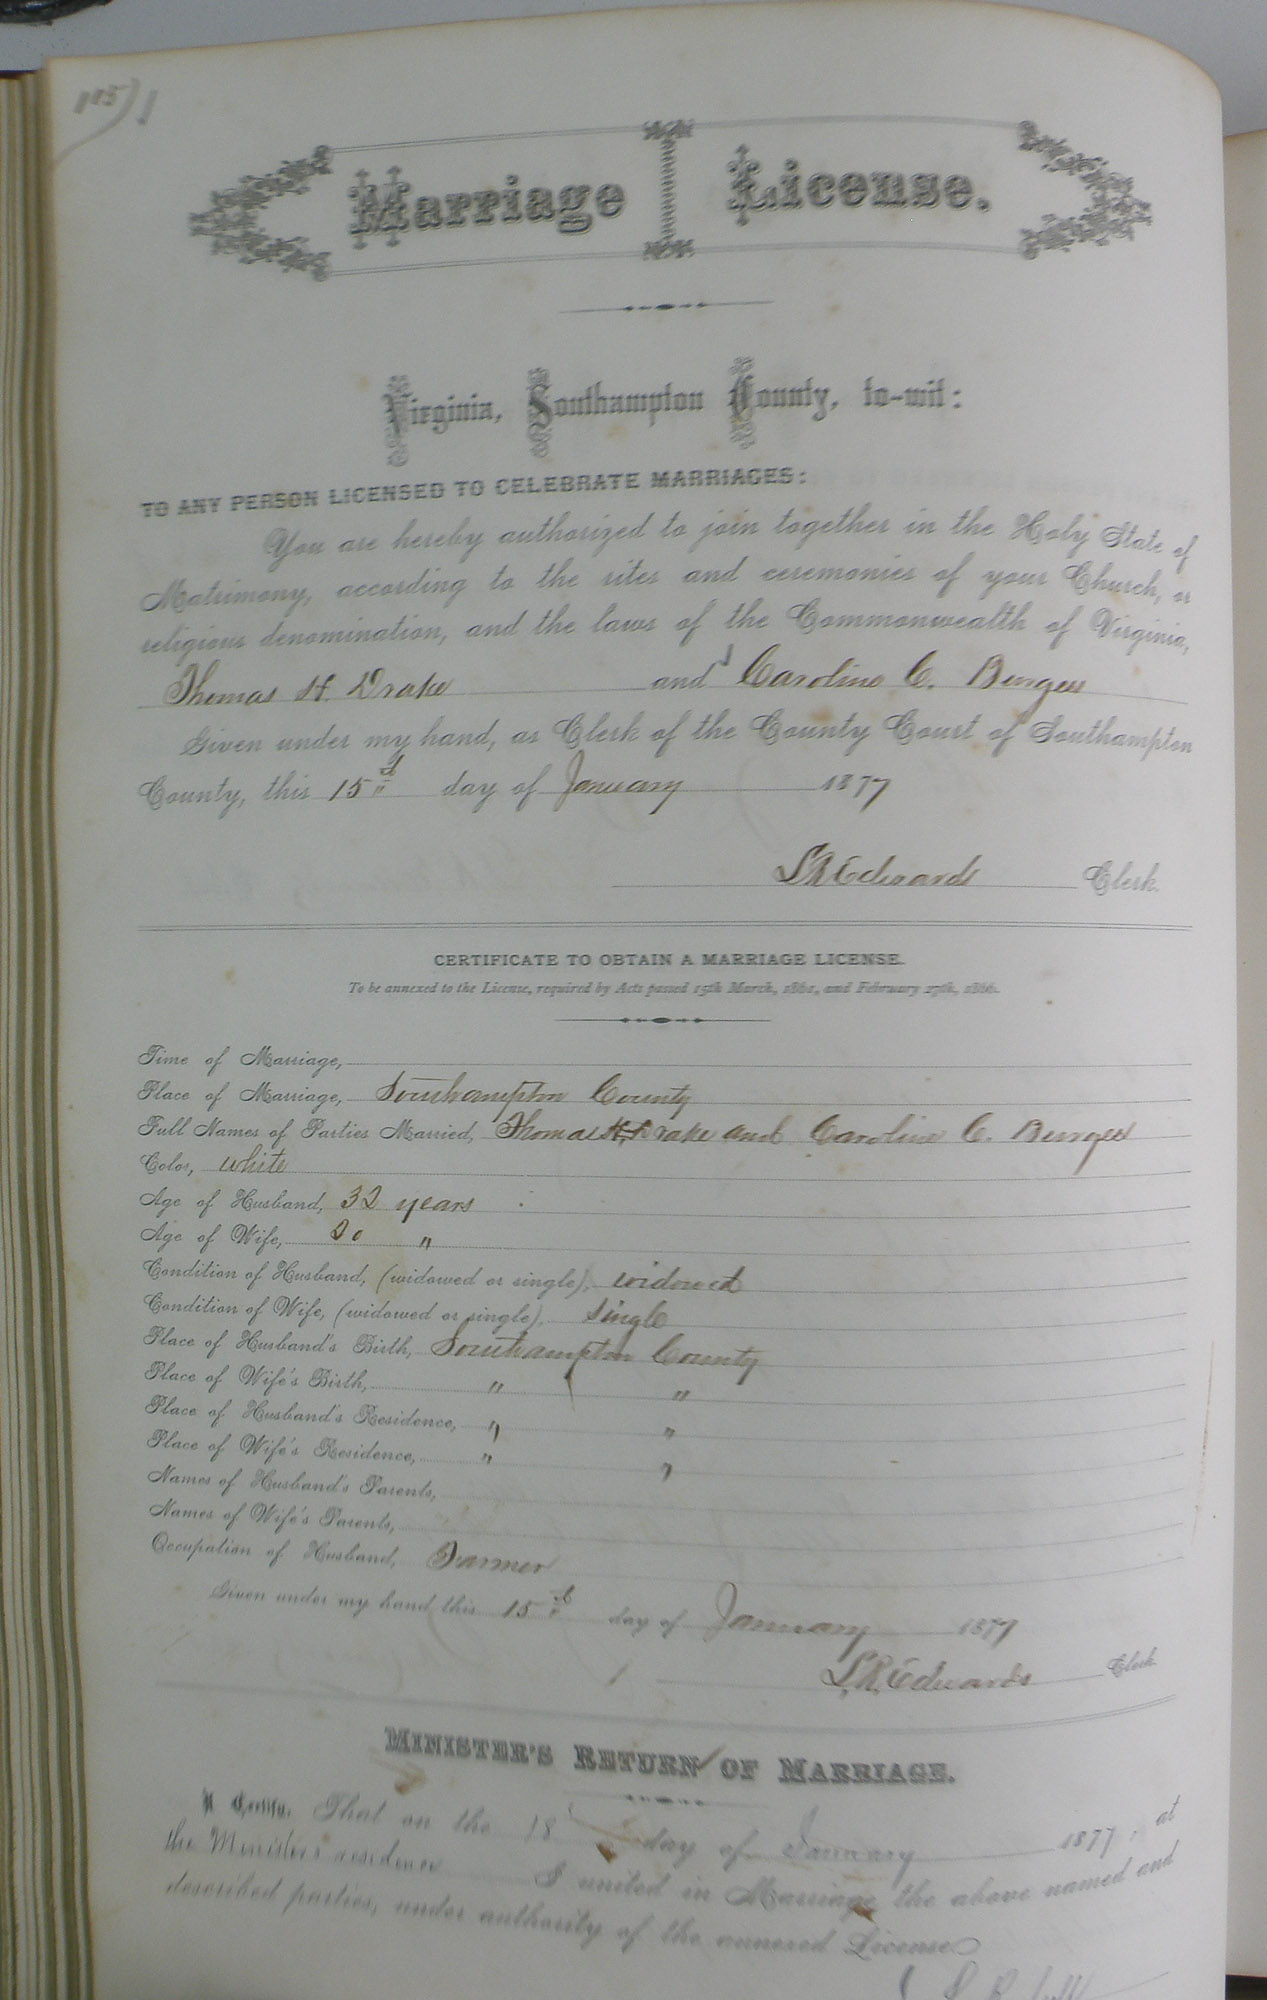 Marriage License.
Virginia, Southampton County, to-wit:
TO ANY PERSON LICENSED TO CELEBRATE MARRIAGES:
You are hereby authorized to join together in the Holy State of
Matrimony, according to the rites and ceremonies of your Church, or
religious denomination, and the laws of the Commonwealth of Virginia,
Thomas H. Drake and Caroline C. Burgess
Given under my hand, as Clerk of the County Court of Southampton
County, this 15th day of January 1877
L R Edwards Clerk.
CERTIFICATE TO OBTAIN A MARRIAGE LICENSE.
To be annexed to the License, required by Acts passed 15th March, 1861, and February 27th, 1866.
Time of Marriage,
Place of Marriage, Southampton County
Full Names of Parties Married, Thomas H. Drake and Caroline C. Burgess
Color, white
Age of Husband, 32 years
Age of Wife, 20 "
Condition of Husband, (widowed or single), widowed
Condition of Wife, (widowed or single), single
Place of Husband's Birth, Southampton County
Place of Wife's Birth, " "
Place of Husband's Residence, " "
Place of Wife's Residence, " "
Names of Husband's Parents,
Names of Wife's Parents,
Occupation of Husband, Farmer
Given under my hand this 15th day of January 1877
L. R. Edwards Clerk.
MINISTER'S RETURN OF MARRIAGE.
I Certify, That on the 18 day of January 1877, at
the Minister's residence I united in Marriage the above named and
described parties, under authority of the annexed License